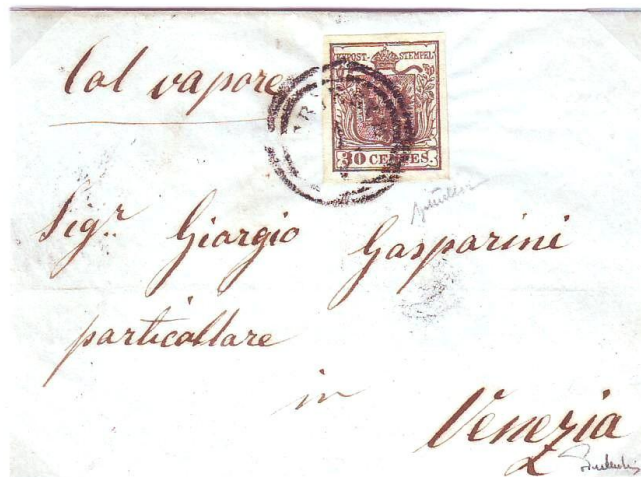 Col vapore
KKPOST-STEMPEL
30 CENTES.
Sigr. Giorgio Gasparini
particollare
in
Venezia